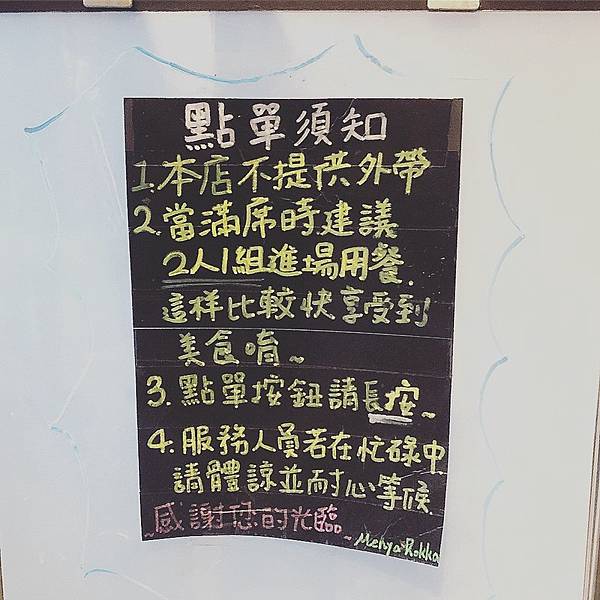 點單須知
1.本店不提供外帶
2.當滿席時建議
2人1組進場用餐.
這样比較快享受到
美食唷~
3.點單按鈕請長按~
4.服務人員若在忙碌中
請體諒並耐心等候
~感謝恐的光臨~
Menya Rokka